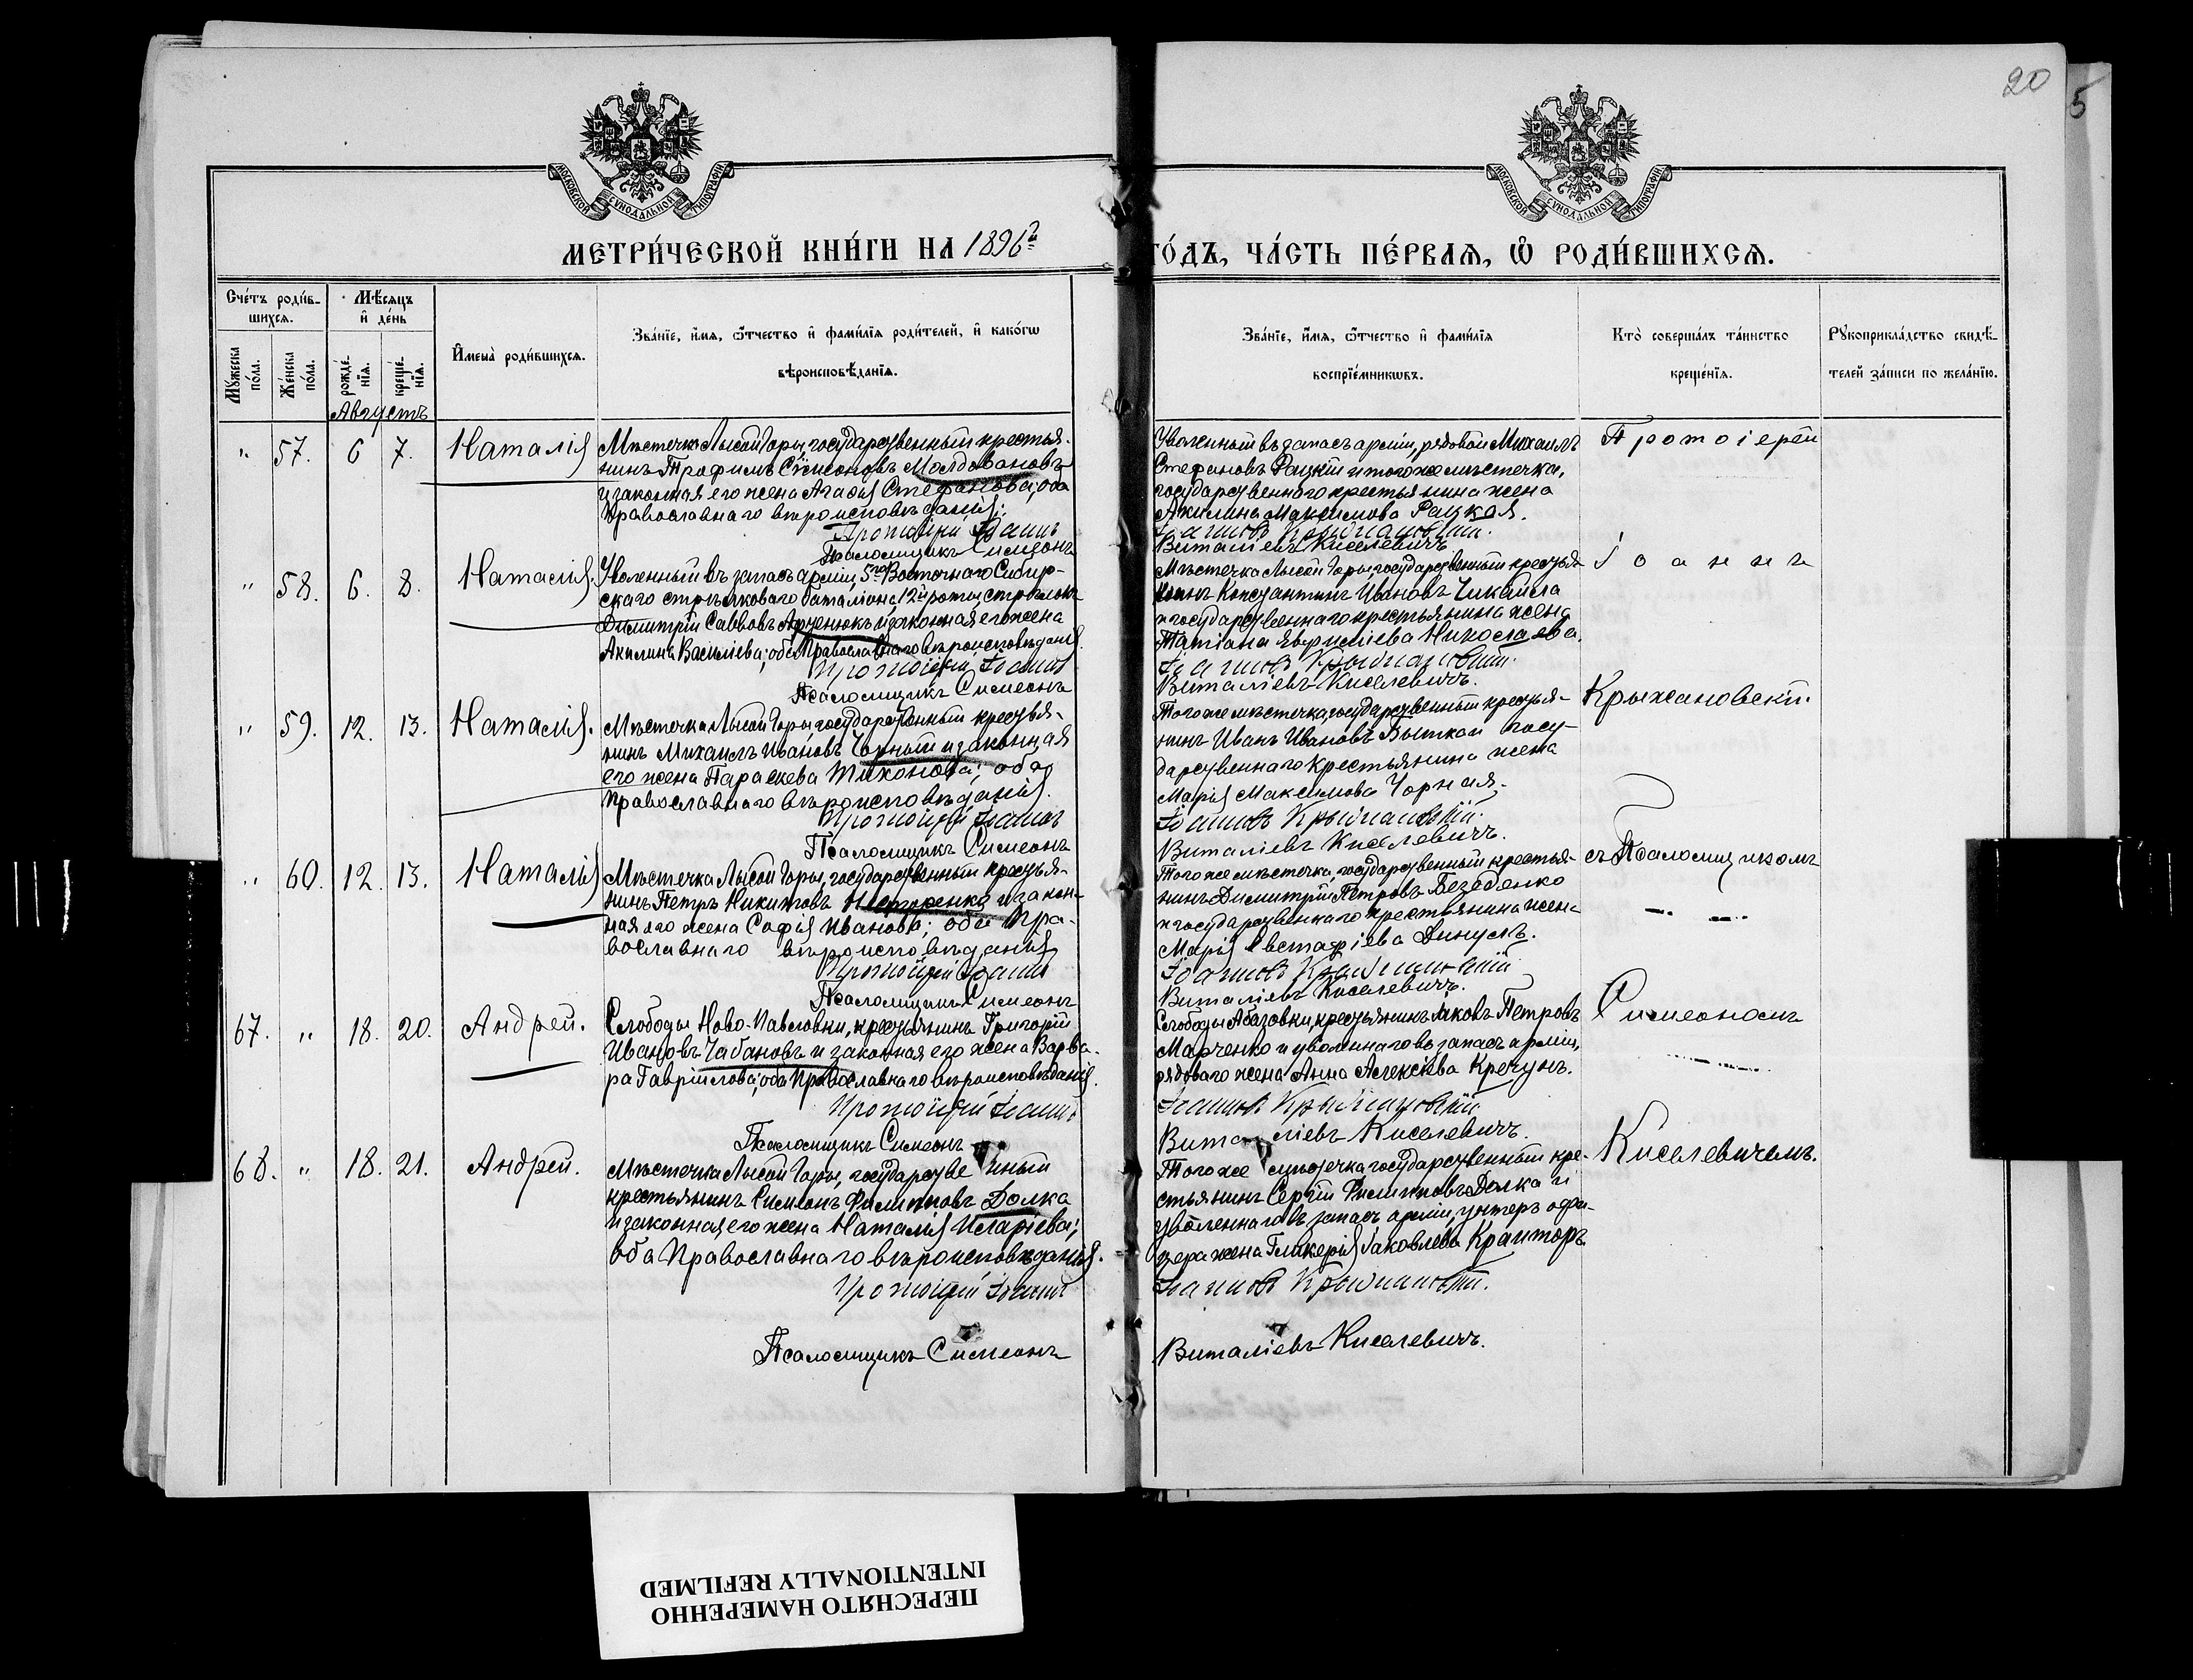 20
5
МОСКОВСКОЙ СѴНОДАЛЬНОЙ ТИПОГРАФІИ
МОСКОВСКОЙ СѴНОДАЛЬНОЙ ТИПОГРАФІИ
МЕТРИ́ЧЕСКОЙ КНИ́ГИ НА 1896 г
ГО́ДЪ, ЧА́СТЬ ПЕ́РВАѦ, Ѡ РОДИ́ВШИХСѦ.
Сче́тъ роди́в-
шихсѧ.
Мѣ́сѧцъ
и де́нь
Мꙋжеска по́ла.
Же́нска по́ла.
рожде́-
нїѧ.
креще́-
нїѧ.
Имена̀ роди́вшихсѧ.
Зва́нїе, и́мѧ, ѻ́тчество и фами́лїѧ роди́телей, и како́гѡ
вѣроисповѣ́данїѧ.
Зва́нїе, и́мѧ, ѻ́тчество и фами́лїѧ
воспрїе́мникѡвъ.
Кто̀ соверша́лъ та́инство
креще́нїѧ.
Рꙋкоприкла́дство свидѣ́-
телей за́писи по жела́нїю.
Августъ
" 57. 6 7. Наталія
Мѣстечка Лысой Горы, государственный крестья-
нинъ Трофимъ Сѵмеоновъ Молдовановъ
и законная его жена Агафія Стефанова; оба
Православнаго вѣроисповѣданія.
Протоіерей Іоаннъ
Псаломщикъ Симеонъ
Уволенный въ запасъ арміи, рядовой Михаилъ
Стефановъ Рацкій и того же мѣстечка,
государственнаго крестьянина жена
Акилина Максимова Рацкая.
Іоанновъ Крыжановскій.
Виталіевъ Киселевичъ.
Протоіерей
" 58. 6. 8. Наталія.
Уволенный въ запасъ арміи, 5го Восточнаго Сибир-
скаго стрѣлковаго баталіона, 12й роты, стрѣлокъ
Димитрій Саввовъ Арченюкъ и законная его жена
Акилина Василіева; оба Православнаго вѣроисповѣданія.
Протоіерей Іоаннъ
Псаломщикъ Симеонъ
Мѣстечка Лысой Горы, государственный крестья-
нинъ Константинъ Ивановъ Чикайла
и государственнаго крестьянина жена
Татіана Николаева.
Іоанновъ Крыжановскій.
Виталіевъ Киселевичъ.
Іоаннъ
" 59. 12. 13. Наталія.
Мѣстечка Лысой Горы, государственный крестья-
нинъ Михаилъ Ивановъ Чорный и законная
его жена Параскева Тихонова; оба
Православнаго вѣроисповѣданія.
Протоіерей Іоаннъ
Псаломщикъ Симеонъ
Того же мѣстечка, государственный крестья-
нинъ Иванъ Ивановъ и госу-
дарственнаго крестьянина жена
Марія Максимова Чорная.
Іоанновъ Крыжановскій.
Виталіевъ Киселевичъ.
Крыжановскій.
" 60. 12. 13. Наталія
Мѣстечка Лысой Горы, государственный крестья-
нинъ Петръ Никитовъ и закон-
ная его жена Софія Иванова; оба Пра-
вославнаго вѣроисповѣданія
Протоіерей Іоаннъ
Псаломщикъ Симеонъ
Того же мѣстечка, государственный крестья-
нинъ Димитрій Петровъ Беззбенко
и государственнаго крестьянина жена
Марія Евстафіева Динулъ.
Іоанновъ Крыжановскій
Виталіевъ Киселевичъ.
съ Псаломщикомъ
67. " 18. 20. Андрей.
Слободы Ново-Павловки, крестьянинъ Григорій
Ивановъ Чабановъ и законная его жена Варва-
ра Гавріилова; оба Православнаго вѣроисповѣданія.
Протоіерей Іоаннъ
Псаломщикъ Симеонъ
Слободы Абазовки, крестьянинъ Іаковъ Петровъ
Марченко и уволеннаго въ запасъ арміи,
рядоваго жена Анна Алексіева Кречунъ.
Іоанновъ Крыжановскій
Виталіевъ Киселевичъ.
Симеономъ
68. " 18. 21. Андрей.
Мѣстечка Лысой Горы, государственный
крестьянинъ Симеонъ Филипповъ Долка
и законная его жена Наталія Иларіева;
оба Православнаго вѣроисповѣданія.
Протоіерей Іоаннъ
Псаломщикъ Симеонъ
Того же мѣстечка государственный кре-
стьянинъ Сергій Филипповъ Долка и
уволеннаго въ запасъ арміи, унтеръ офи-
цера жена Гликерія Іаковлева Кранторъ
Іоанновъ Крыжановскій.
Виталіевъ Киселевичъ.
Киселевичемъ.
ПЕРЕСНЯТО НАМЕРЕННО
INTENTIONALLY REFILMED